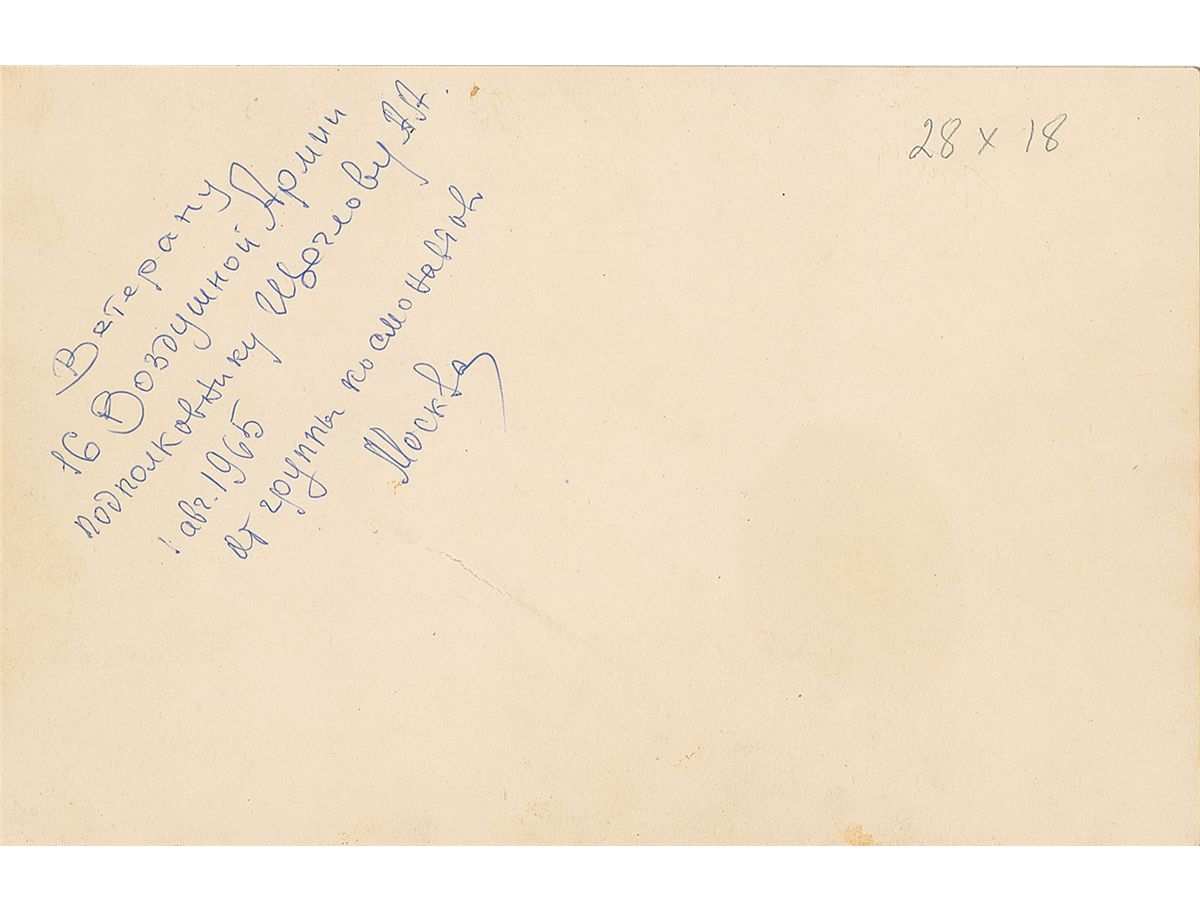 Ветерану
16 Воздушной Армии
подполковнику А.А.
1 авг. 1965
от группы космонавтов
Москва
28 x 18